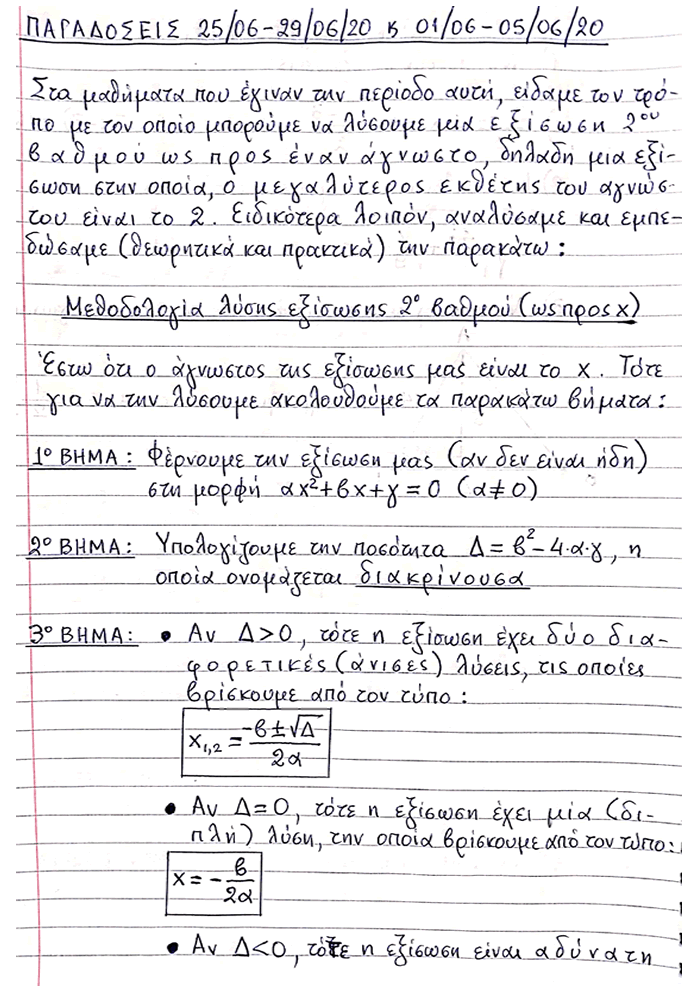 ΠΑΡΑΔΟΣΕΙΣ 25/06-29/06/20 & 01/06-05/06/20
Στα μαθήματα που έγιναν την περίοδο αυτή, είδαμε τον τρό-
πο με τον οποίο μπορούμε να λύσουμε μια εξίσωση 2ου
βαθμού ως προς έναν άγνωστο, δηλαδή μια εξί-
σωση στην οποία, ο μεγαλύτερος εκθέτης του αγνώσ-
του είναι το 2. Ειδικότερα λοιπόν, αναλύσαμε και εμπε-
δώσαμε (θεωρητικά και πρακτικά) την παρακάτω:
Μεθοδολογία λύσης εξίσωσης 2ο βαθμού (ως προς x)
Έστω ότι ο άγνωστος της εξίσωσης μας είναι το x. Τότε
για να την λύσουμε ακολουθούμε τα παρακάτω βήματα:
1ο ΒΗΜΑ: Φέρνουμε την εξίσωση μας (αν δεν είναι ήδη)
στη μορφή αx²+βx+γ=0 (α≠0)
2ο ΒΗΜΑ: Υπολογίζουμε την ποσότητα Δ=β²-4·α·γ, η
οποία ονομάζεται διακρίνουσα
3ο ΒΗΜΑ: • Αν Δ>0, τότε η εξίσωση έχει δύο δια-
φορετικές (άνισες) λύσεις, τις οποίες
βρίσκουμε από τον τύπο:
x1,2 = -β±√Δ / 2α
• Αν Δ=0, τότε η εξίσωση έχει μία (δι-
πλή) λύση, την οποία βρίσκουμε από τον τύπο:
x = - β / 2α
• Αν Δ<0, τότε η εξίσωση είναι αδύνατη